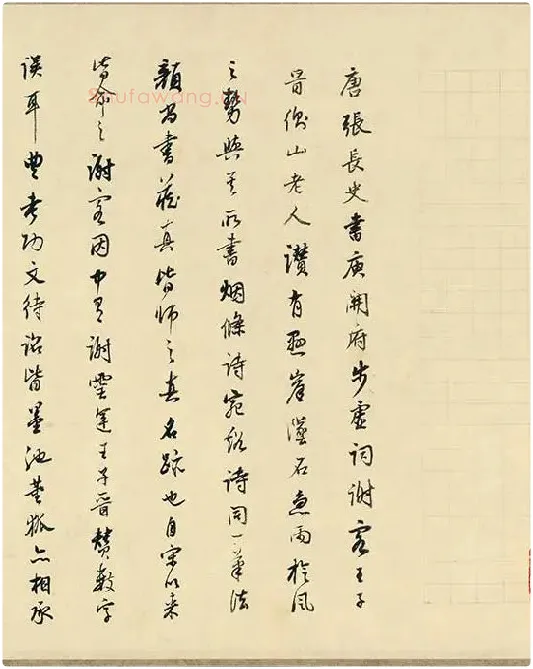 唐張長史書庾開府步虛詞謝客王子
晉衡山老人讚有懸崖墜石急雨旋風
之勢與其所書烟條詩宛谿詩同一筆法
顏尚書藏真皆師之真名跡也自宋以來
皆命之謝客因中有謝靈運王子晉贊數字
誤耳豐考功文待詔皆墨池董狐亦相承
Shufawang.cn